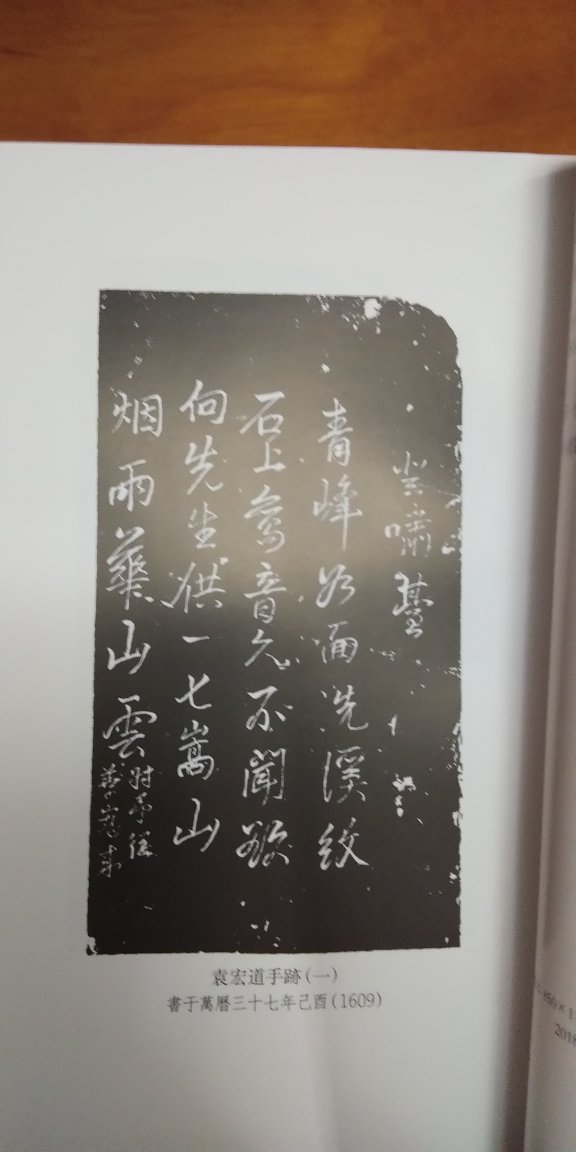 登嘯臺
青峰如面洗溪紋
石上鸞音久不聞欲
向先生供一七嵩山
烟雨華山雲
時予從
華嵩來
袁宏道手跡(一)
書于萬曆三十七年己酉(1609)
850×1
2018